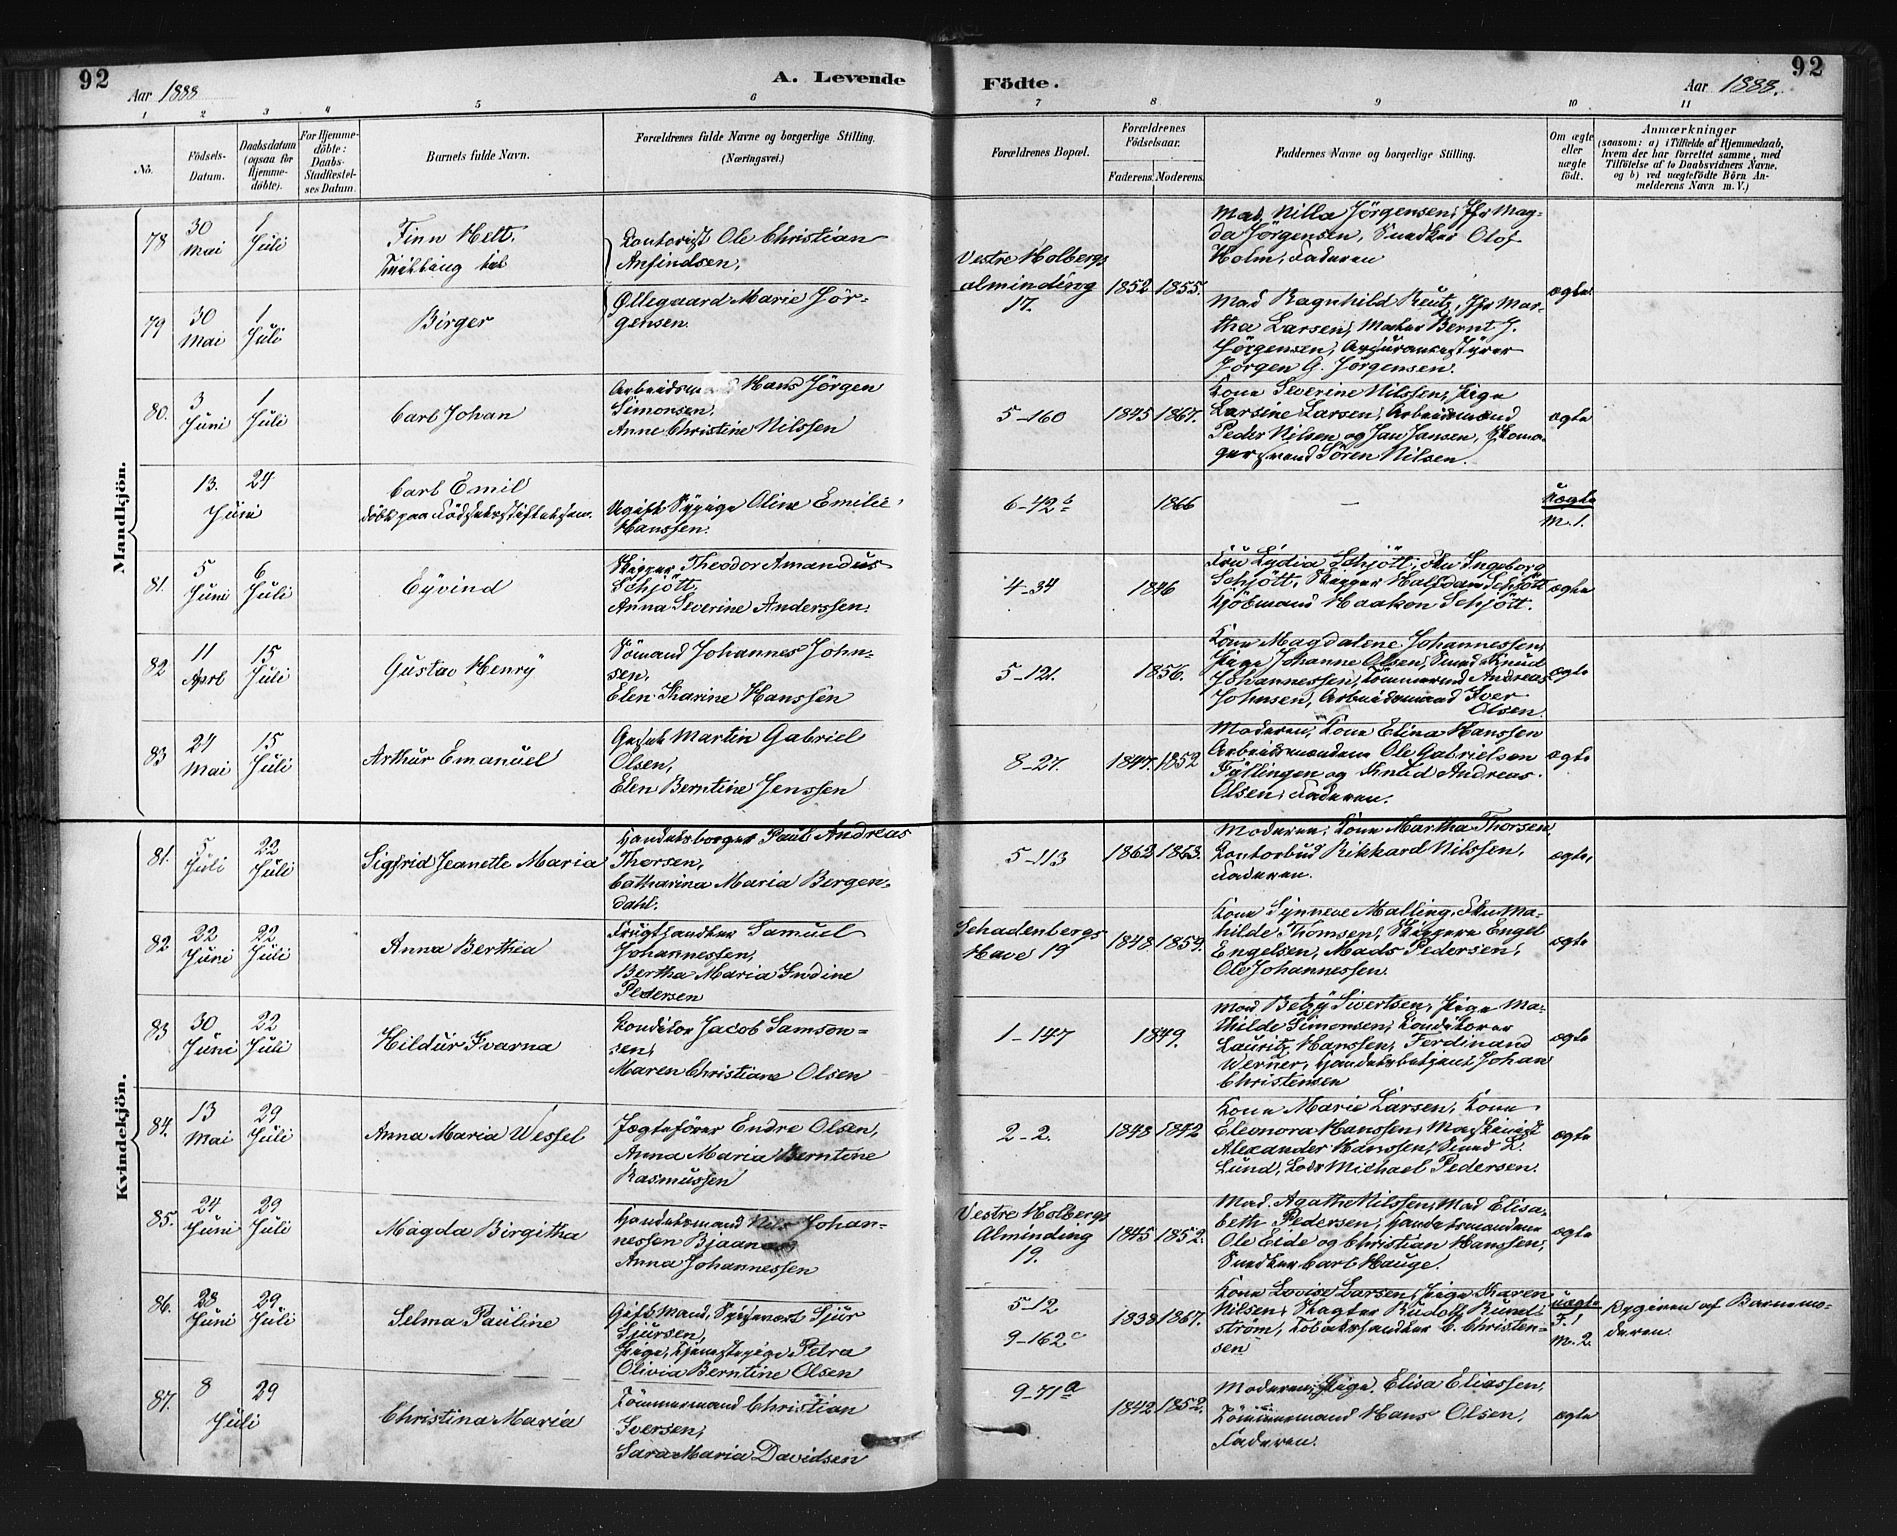 92
Aar 1888
A. Levende
Födte.
Aar 1888.
92
1 2 3 4 5 6 7 8 9 10 11
No.
Födsels-Datum.
Daabsdatum (ogsaa för Hjemmedöbte).
For Hjemmedöbte: Daabs-Stadfæstelses Datum.
Barnets fulde Navn.
Forældrenes fulde Navne og borgerlige Stilling. (Næringsvei.)
Forældrenes Bopæl.
Forældrenes Födselsaar.
Faderens. Moderens.
Faddernes Navne og borgerlige Stilling.
Om ægte eller uægte födt.
Anmærkninger
(saasom: a) i Tilfælde af Hjemmedaab, hvem der har forrettet samme, med Tilföielse af to Daabsvidners Navne, og b) ved uægtefödte Börn Anmelderens Navn m. V.)
Mandkjön.
78 30 Mai 1 Juli
Finn Helt.
Tvilling
Kontorist Ole Christian
Anfindsen,
Vestre Holbergs
alminding
17.
1852 1855.
Mad. Nilla Jörgensen, Jfr Mag-
da Jörgensen, Snedker Olof
Holm, Faderen
ægte
79 30 Mai 1 Juli
Birger
Ollegaard Marie Jör-
gensen.
Mad Ragnhild Reutz, Jfr Mar-
tha Larsen, Maler Bernt J.
Jörgensen, Assurancestyrer
Jörgen G. Jörgensen.
80. 3 Juni 1 Juli
Carl Johan
Arbeidsmand Hans Jörgen
Simonsen,
Anne Christine Nilssen
5-160
1845 1867.
Kone Severine Nilssen, Pige
Larsine Larsen, Arbeidsmænd
Peder Nilsen og Jan Jansen, Skoma-
gersvend Sören Nilsen.
ægte
13. 24 Juni
Carl Emil
döbt paa Födselsstiftelsen.
Ugift Sypige Oline Emilie
Hanssen.
6-42 b
1866
—
uægte
M. 1.
81. 5 Juni 6 Juli
Eyvind
Skipper Theodor Amandus
Schjött,
Anna Severine Anderssen.
4-34
1846
Fru Lydia Schjött, Fru Ingeborg
Schjött, Skipper Halfdan Schjött
Kjöbmand Haakon Schjött.
ægte
82 11 April 15 Juli
Gustav Henry
Sömand Johannes John-
sen,
Elen Karine Hanssen
5-121.
1856.
Kone Magdalene Johannessen,
Pige Johanne Olsen, Smed Knud
Johannessen, Tömmermd Andreas
Johnsen, Arbeidsmand Iver
Olsen.
ægte
83 24 Mai 15 Juli
Arthur Emanuel
Martin Gabriel
Olsen,
Elen Berntine Jenssen
8-27.
1847. 1852
Moderen, Kone Elina Hanssen
Arbeidsmændene Ole Gabrielsen
Fyllingen og Knud Andreas
Olsen, Faderen.
ægte
Kvindekjön.
81. 5 Juli 22 Juli
Sigfrid Jeanette Maria
Handelsborger Paul Andreas
Thorsen,
Catharina Maria Bergen-
dahl.
5-113
1862 1863.
Moderen, Kone Martha Thorsen,
Kontorbud Rikkard Nilssen,
Faderen.
ægte
82. 22 Juni 22 Juli
Anna Berthea
Frugthandler Samuel
Johannessen,
Bertha Maria Indine
Pedersen
Schadenbergs
Have 19
1848 1859.
Kone Synneve Malling, Fru Ma-
hilde Thomsen, Skippere Engel
Engelsen, Mads Pedersen,
Ole Johannessen.
ægte
83. 30 Juni 22 Juli
Hildur Ivarna
Konditor Jacob Samson-
sen,
Maren Christiane Olsen
1-147
1849.
Mad Betzy Sivertsen, Pige Ma-
thilde Simonsen, Konditorer
Lauritz Hanssen, Ferdinand
Werner, Handelsbetjent Johan
Christensen
ægte
84. 13 Mai 29 Juli
Anna Maria Wessel
Jægteförer Endre Olsen,
Anna Maria Berntine
Rasmussen
2-2.
1848 1842
Kone Marie Larsen, Kone
Eleonora Hanssen, Maskinist
Alexander Hanssen, Smed L.
Lund, Lods Michael Pedersen.
ægte
85. 24 Juni 29 Juli
Magda Birgitha
Handelsmand Nils Johan-
nessen Bjaanæs
Anna Johannessen
Vestre Holbergs
Alminding
19.
1845 1852.
Mad. Agathe Nilssen, Mad Elisa-
beth Pedersen, Handelsmændene
Ole Eide og Christian Hanssen,
Snedker Carl Hauge.
ægte
86. 28 Juni 29 Juli
Selma Pauline
Gift Mand, Spisevært Sjur
Sjursen,
Pige, Tjenestepige Petra
Olivia Berntine Olsen
5-12
9-162 c
1838 1867.
Kone Lovise Larsen, Pige Karen
Nilsen, Slagter Rudolf Rund-
ström, Tobakshandler C. Christen-
sen
uægte
F. 1
M. 2.
Opgiven af Barnemo-
deren.
87. 8 29 Juli
Christina Maria
Tömmermand Christian
Iversen,
Sara Maria Davidsen
9-71 a
1842 1852.
Moderen, Pige Elisa Eliassen,
Tömmermand Hans Olsen,
Faderen.
ægte